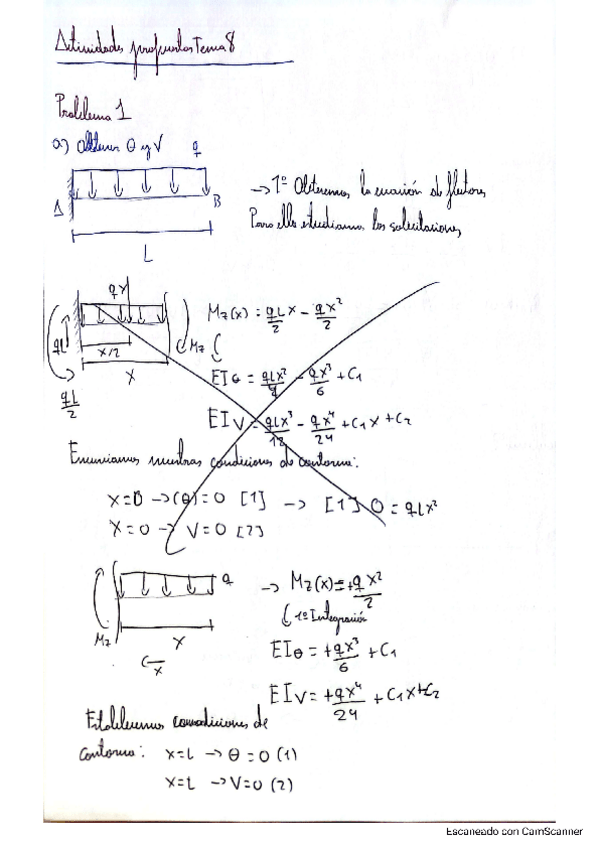 Actividades propuestas Tema 8
Problema 1
a) Obtener θ y V q
A B
L
→ 1º Obtenemos la ecuación de flectores
Para ello estudiamos las solicitaciones
qx
qL
x/2
x
qL/2
Mz
Mz(x) = qL/2 x - qx²/2
EIθ = qLx²/4 - qx³/6 + C1
EIV = qLx³/12 - qx⁴/24 + C1x + C2
Enunciamos nuestras condiciones de contorno:
x=0 → (θ) = 0 [1] → [1] 0 = qLx²
x=0 → V = 0 [2]
q
Mz
x
x
→ Mz(x) = +qx²/2
1º Integración
EIθ = +qx³/6 + C1
EIV = +qx⁴/24 + C1x + C2
Establecemos condiciones de
contorno: x=L → θ = 0 (1)
x=L → V=0 (2)
Escaneado con CamScanner